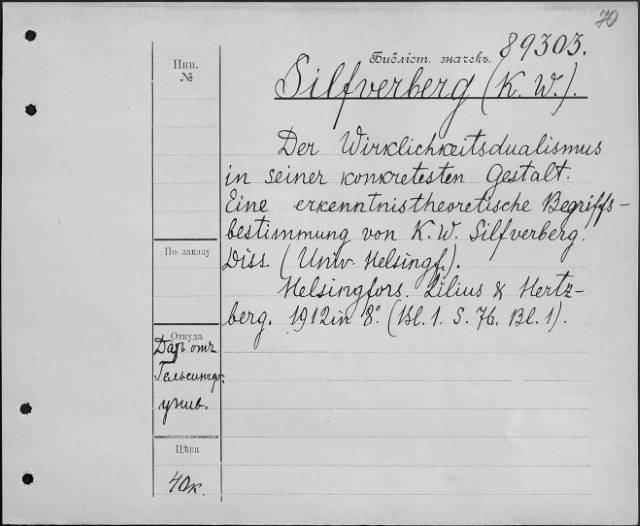 70
Инв.
№
Библіот. значекъ. 89303.
Silfverberg (K. W.).
Der Wirklichkeitsdualismus
in seiner konkretesten Gestalt.
Eine erkenntnistheoretische Begriffs-
bestimmung von K. W. Silfverberg.
Diss. (Univ. Helsingf.).
Helsingfors. Lilius & Hertz-
berg. 1912 in 8º. (Bl. 1. S. 76. Bl. 1).
По заказу
Откуда
Даръ отъ
Гельсингф.
унив.
Цѣна
40к.